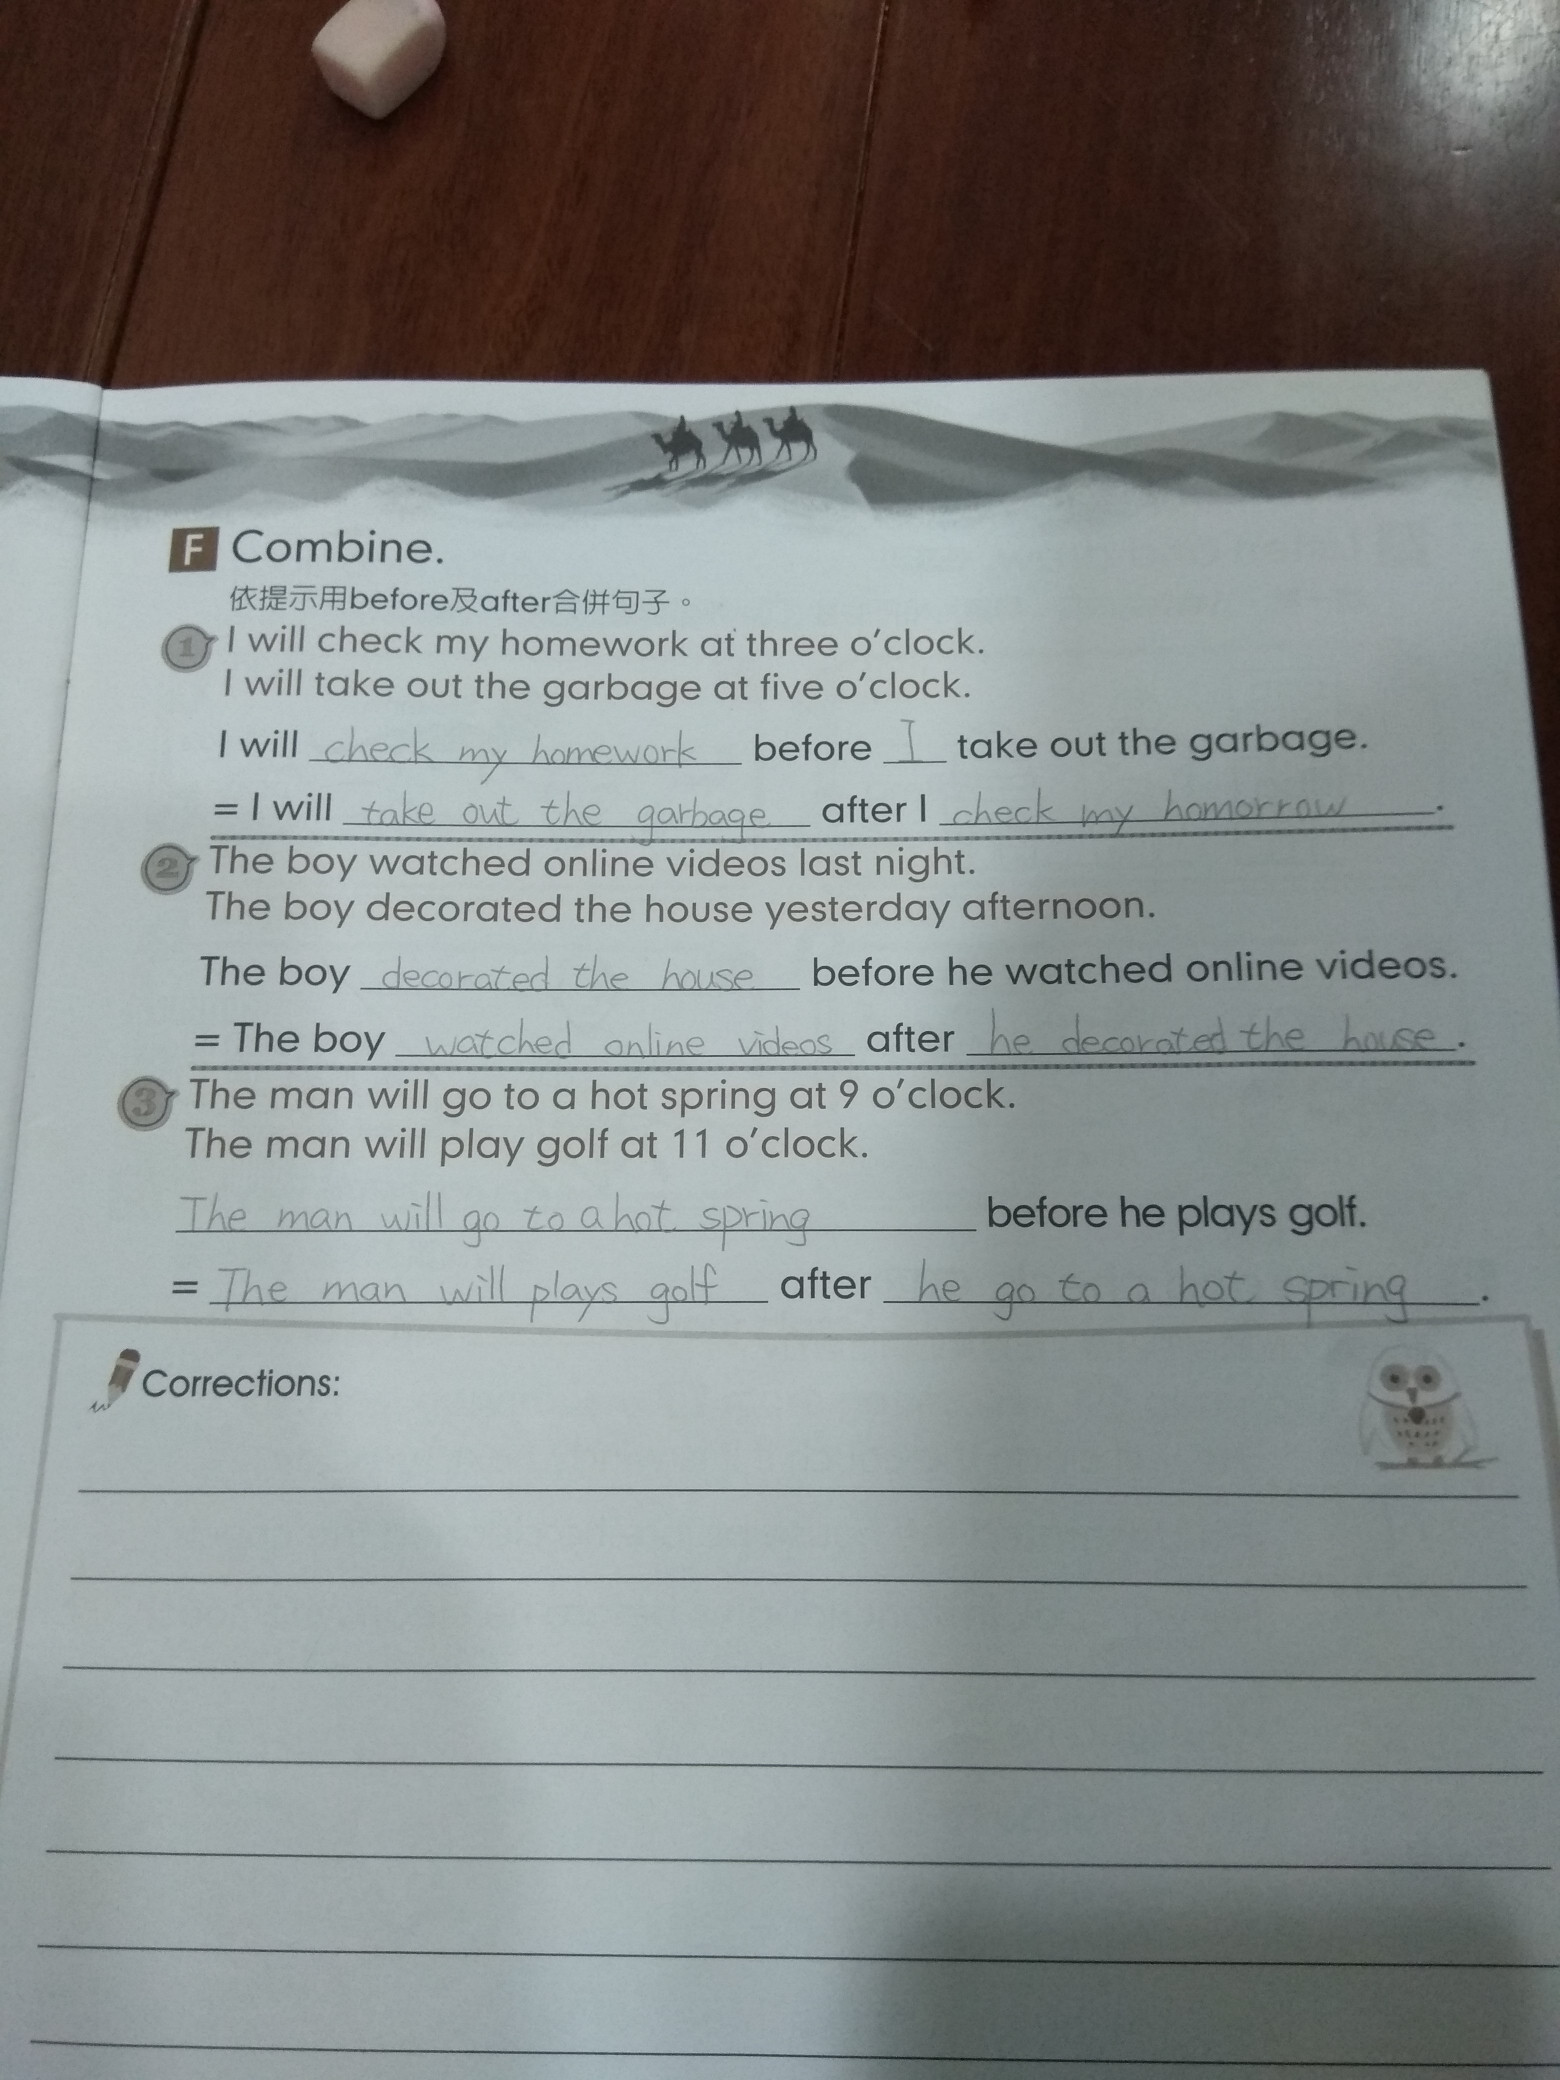 F Combine.
依提示用before及after合併句子。
1 I will check my homework at three o’clock.
I will take out the garbage at five o’clock.
I will check my homework before I take out the garbage.
= I will take out the garbage after I check my homorrow.
2 The boy watched online videos last night.
The boy decorated the house yesterday afternoon.
The boy decorated the house before he watched online videos.
= The boy watched online videos after he decorated the house.
3 The man will go to a hot spring at 9 o’clock.
The man will play golf at 11 o’clock.
The man will go to a hot spring before he plays golf.
= The man will plays golf after he go to a hot spring.
Corrections: